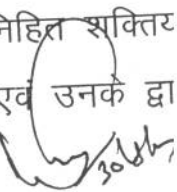 निहित शक्तिय
एवं उनके द्वा